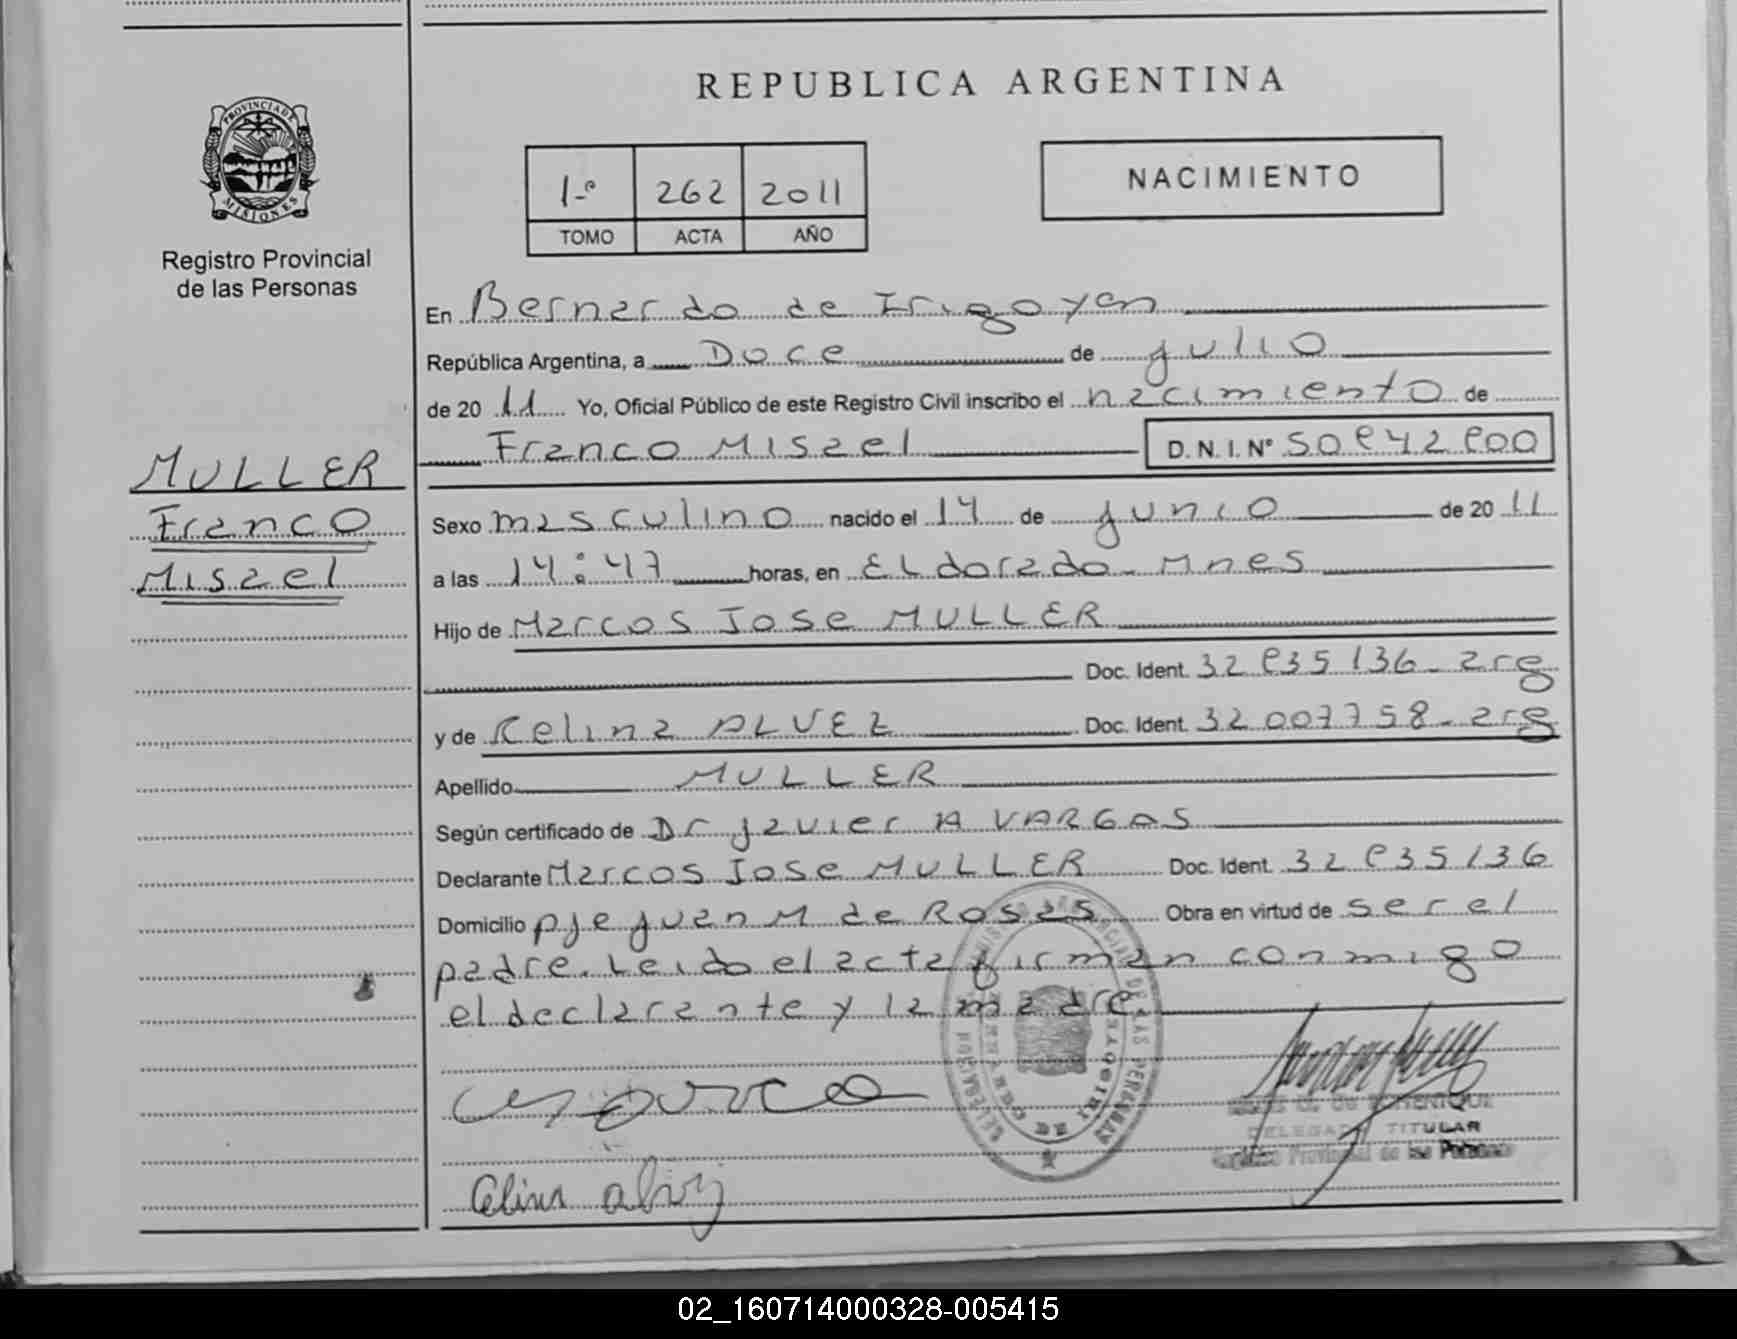 REPUBLICA ARGENTINA
PROVINCIA DE MISIONES
Registro Provincial
de las Personas
1º 262 2011
TOMO ACTA AÑO
NACIMIENTO
En Bernardo de Irigoyen
República Argentina, a Doce de julio
de 2011 Yo, Oficial Público de este Registro Civil inscribo el nacimiento de
Franco Misael D.N.I. Nº 50842800
MULLER
Franco
Misael
Sexo masculino nacido el 14 de junio de 2011
a las 14:47 horas, en ELdorado - Mnes
Hijo de Marcos Jose MULLER
Doc. Ident. 32835136 - arg
y de Celina ALVEZ Doc. Ident. 32007758 - arg
Apellido MULLER
Según certificado de Dr javier A VARGAS
Declarante Marcos Jose MULLER Doc. Ident. 32835136
Domicilio pje juan M de Rosas Obra en virtud de ser el
padre. Leido el acta firman conmigo
el declarante y la madre
Celina
DELEGADA TITULAR
Registro Provincial de las Personas
02_160714000328-005415